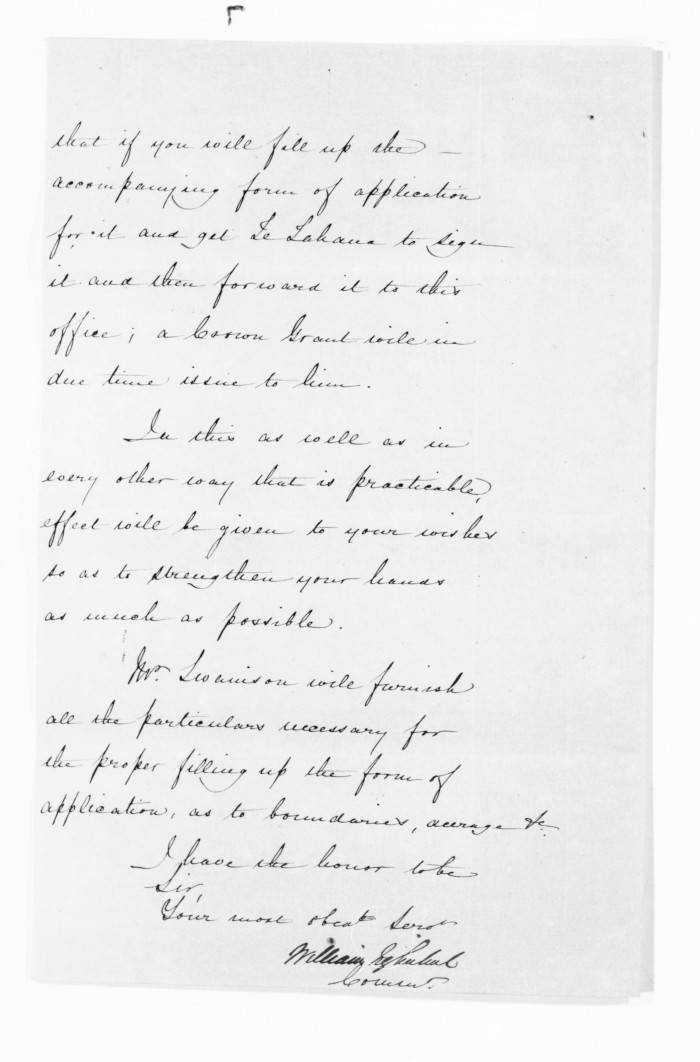 that if you will fill up the —
accompanying form of application
for it and get Te Lahana to sign
it and then forward it to this
office; a Crown Grant will in
due time issue to him.
In this as well as in
every other way that is practicable,
effect will be given to your wishes
so as to strengthen your hands
as much as possible.
Mr. Swainson will furnish
all the particulars necessary for
the proper filling up the form of
application, as to boundaries, acreage &c.
I have the honor to be
Sir,
Your most obedt. Servt
William
Commr.